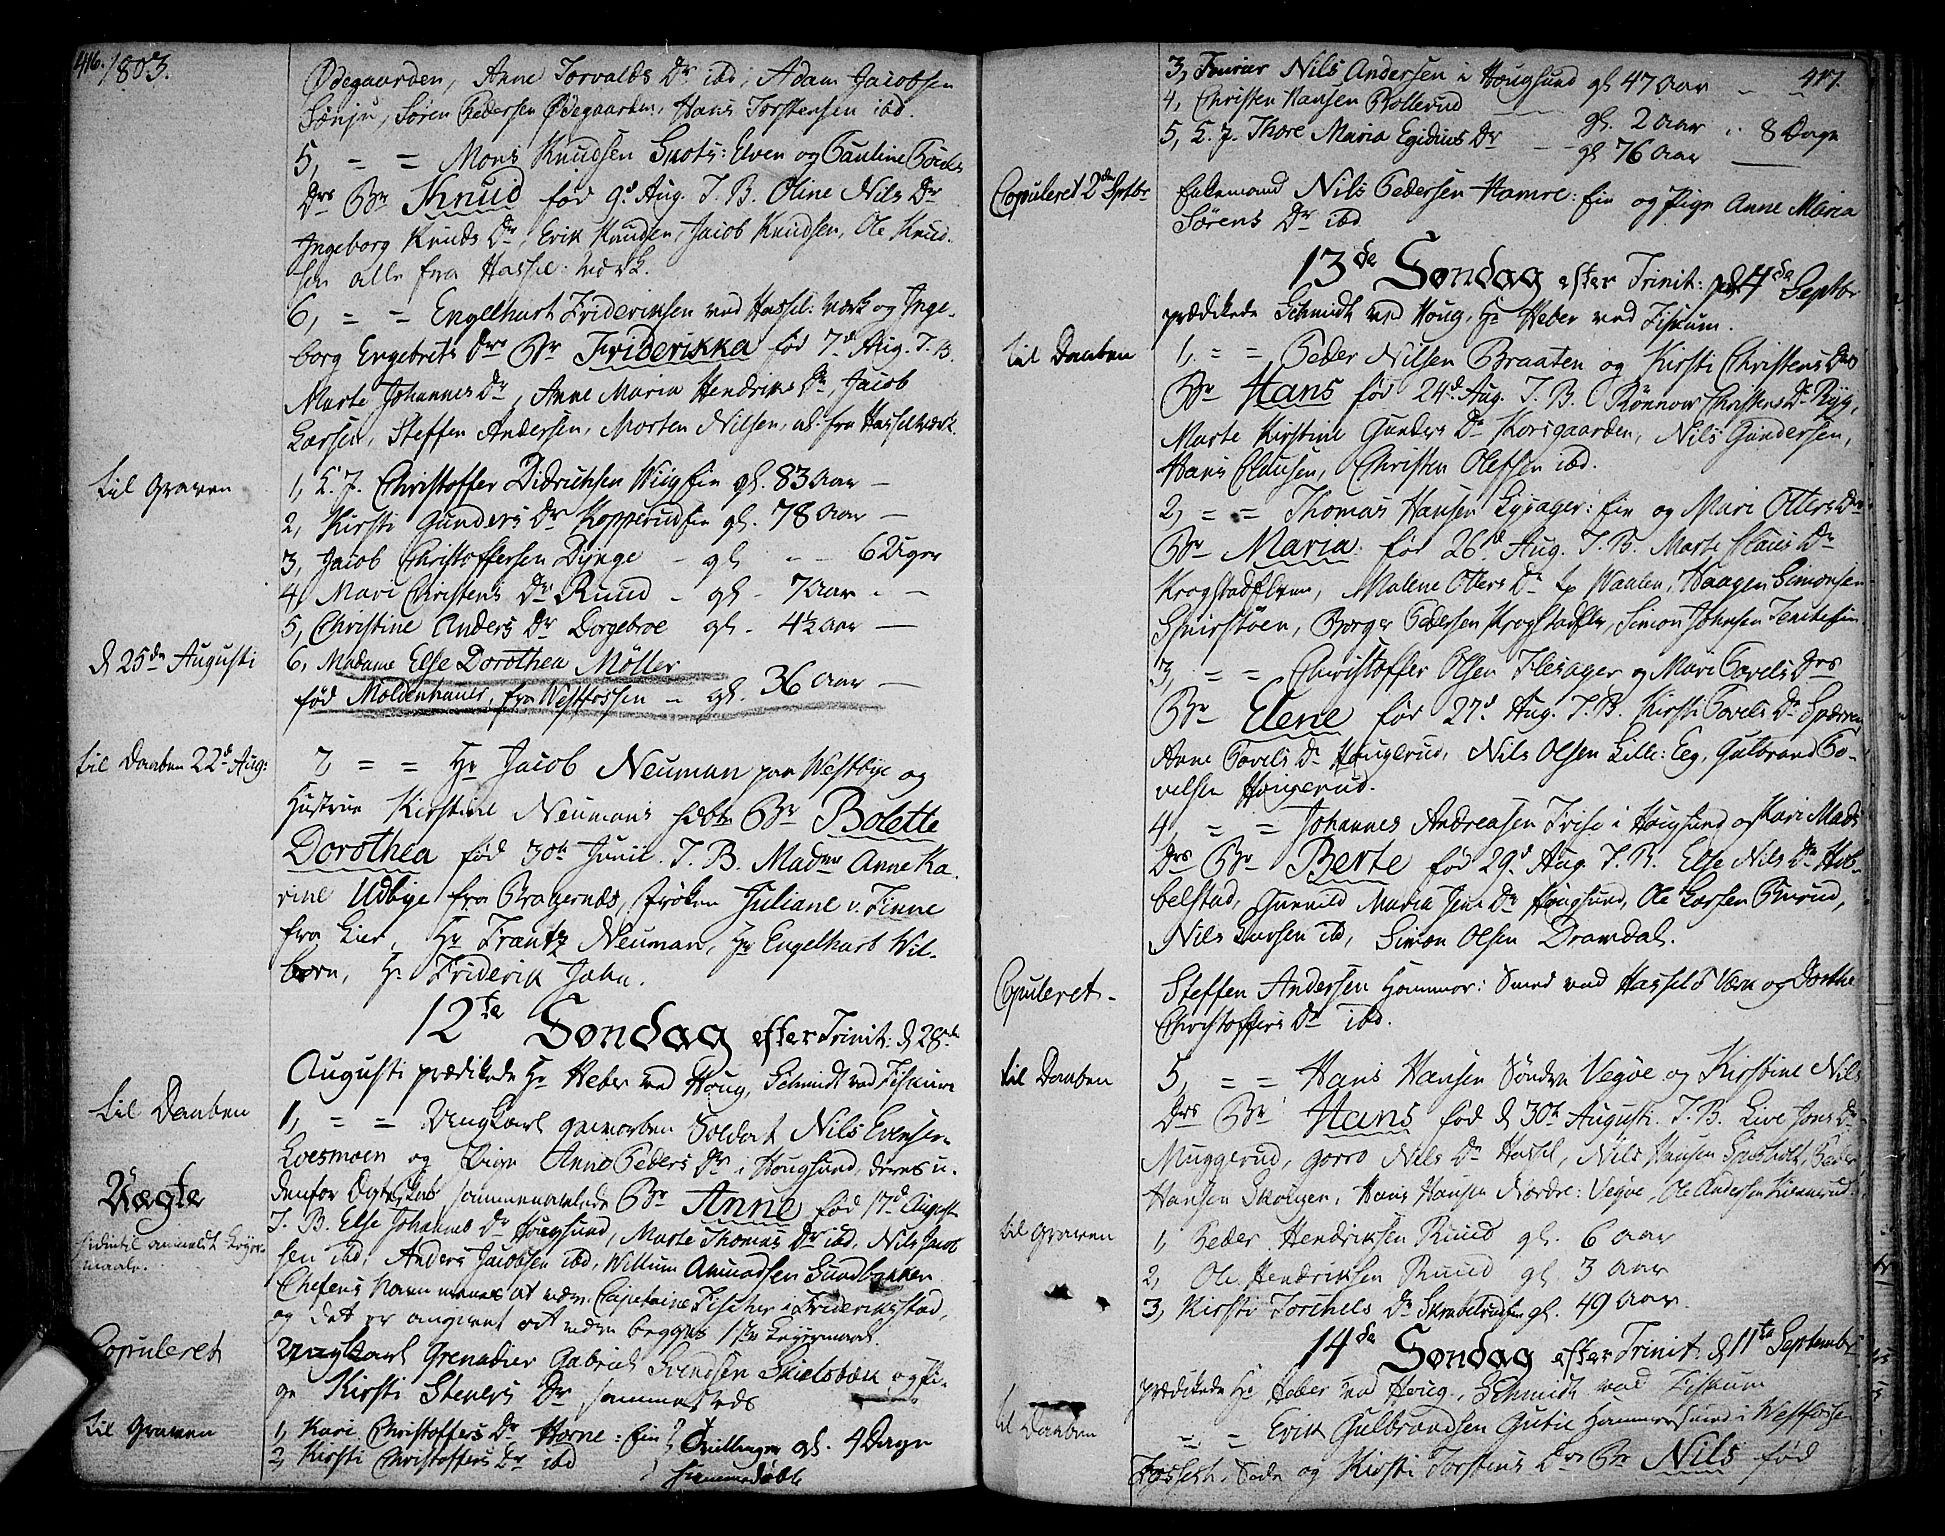 416. 1803.
Ødegaarden, Anne Torvalds Dr ibd, Adam Jacobsen
Sønju, Søren Pedersen Ødegaarden, Hans Torstensen ibd.
5, = = Mons Knudsen Snots: Elven og Pauline Povels
Drs Br Knud fød 9d Aug. T. B. Oline Nils Dr
Ingeborg Knuds Dr, Erik Knudsen, Jacob Knudsen, Ole Knud-
sen alle fra Hassel: Værk.
6, = = Engelhart Frideriksen ved Hassel: Værk og Inge-
borg Engebrets Drs Br Friderikka fød 7d Aug. T. B.
Marte Johannes Dr, Anne Maria Hendriks Dr, Jacob
Larsen, Steffen Andersen, Morten Nilsen, al. fra Hasselværk.
til Graven
1, L. J. Christoffer Didrichsen Wiig fin gl. 83 Aar —
2, Kirsti Gunders Dr Kopperud fin gl. 78 Aar —
3, Jacob Christoffersen Dynge - gl - - 6 Uger
4, Mari Christens Dr Ruud - gl - 7 Aar - -
5, Christine Anders Dr Dorgebroe gl - 4½ Aar —
d 25de Augusti
6, Madame Else Dorothea Möller
fød Moldenhauer, fra Westfossen - gl. 36 Aar —
til Daaben 22d Aug:
7, = = Hr Jacob Neuman paa Westbye og
Hustrue Kirstine Neumans Br Bolette
Dorothea fød 30te Junii. T. B. Madme Anne Ka-
rine Udbye fra Bragernæs, frøken Juliane v. Finne
fra Lier, Hr Frantz Neuman, Hr Engelhart Wil-
born, Hr Friderik Jahn.
12te Søndag efter Trinit: d 28de
Augusti prædikede Hr Heber ved Houg, Schmidt ved Fiskum
til Daaben
1, = = Ungkarl gevorben Soldat Nils Evensen
Loesmoen og Pige Anne Peders Dr i Hougsund, deres u-
denfor Ægteskab sammenavlede Br Anne fød 17d August
Uægte
T. B. Else Johannes Dr Hougsund, Marte Thomas Dr ibd, Nils Jacob
sen ibd, Anders Jacobsen ibd, Willum Amundsen Sundbakken
Chefens Navn menes at være Capitaine Fischer i Friderikstad,
og det er angivet at være begges 1ste Leyermaal
Copuleret
Ungkarl Grenadier Gabriel Svendsen Skielsbæk og Pi-
ge Kirsti Steners Dr sammesteds
til Graven
1, Kari Christoffers Dr Horne: Ein } Tvillinger gl. 4 Dage
2, Kirsti Christoffers Dr ibd } hiemmedøbte
417.
3, Fourier Nils Andersen i Hougsund gl 47 Aar -
4, Christen Hansen Bollerud gl. 2 Aar " 8 Dage
5, L. J. Thore Maria Egidius Dr - - gl 76 Aar —
Copuleret 2den Septbr
Enkemand Nils Pedersen Hamre: Ein og Pige Anne Maria
Sørens Dr ibd
13de Søndag efter Trinit: d 4de Septbr
prædikede Schmidt ved Houg, Hr Heber ved Fiskum.
til Daaben
1, = = Peder Nilsen Braaten og Kirsti Christens Drs
Br Hans fød 24d Aug. T. B. Rönnow Christens Dr Ryg,
Marte Kirstine Gunders Dr Korsgaarden, Nils Gundersen,
Hans Clausen, Christen Olefsen ibd.
2, = = Thomas Hansen Lysager: Ein og Mari Otters Drs
Br Maria fød 26d Aug. T. B. Marte Claus Dr
Krogstadelven, Malene Otters Dr Waalen, Haagen Simonsen
Borger Pedersen Krogstadelv, Simon Johnsen
3, = = Christoffer Olsen Flesager og Mari Povels Drs
Br Elene fød 27d Aug. T. B. Kirsti Povels Dr Sperren
Anne Povels Dr Hougerud, Nils Olsen Lille: Eeg, Gulbrand Po-
velsen Hougerud.
4, = = Johannes Andreasen Frise i Hougsund og Kari Mads
Drs Br Berte fød 29d Aug. T. B. Else Nils Dr Hob-
belstad, Gunnild Maria Jens Dr Hougsund, Ole Larsen Burud,
Nils Larsen ibd, Simon Olsen Dramdal.
Copuleret -
Steffen Andersen Hammer: Smed ved Hassels Værk og Dorthe
Christoffers Dr ibd.
til Daaben
5, = = Hans Hansen Søndre Vegoe og Kirstine Nils
Drs Br Hans fød d 30te Augusti. T. B. Live Jons Dr
Muggerud, Gorro Nils Dr Hassel, Nils Hansen Peder
Hansen Skougen, Hans Hansen Nordre: Vegoe, Ole Andersen
til Graven
1, Peder Hendriksen Ruud gl. 6 Aar
2, Ole Hendriksen Ruud gl. 3 Aar
3, Kirsti Torchels Dr gl. 49 Aar.
14de Søndag efter Trinit: d 11te Septembr
prædikede Hr Heber ved Houg, Schmidt ved Fiskum
til Daaben
= = Erik Gulbrandsen Gutu Hammersmed i Westfossen
og Kirsti Torstens Drs Br Nils fød